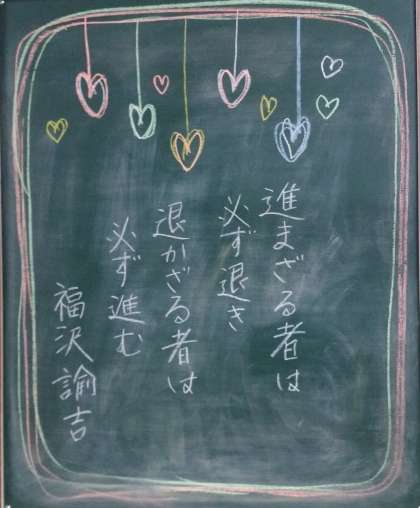 進まざる者は
必ず退き
退かざる者は
必ず進む
福沢諭吉